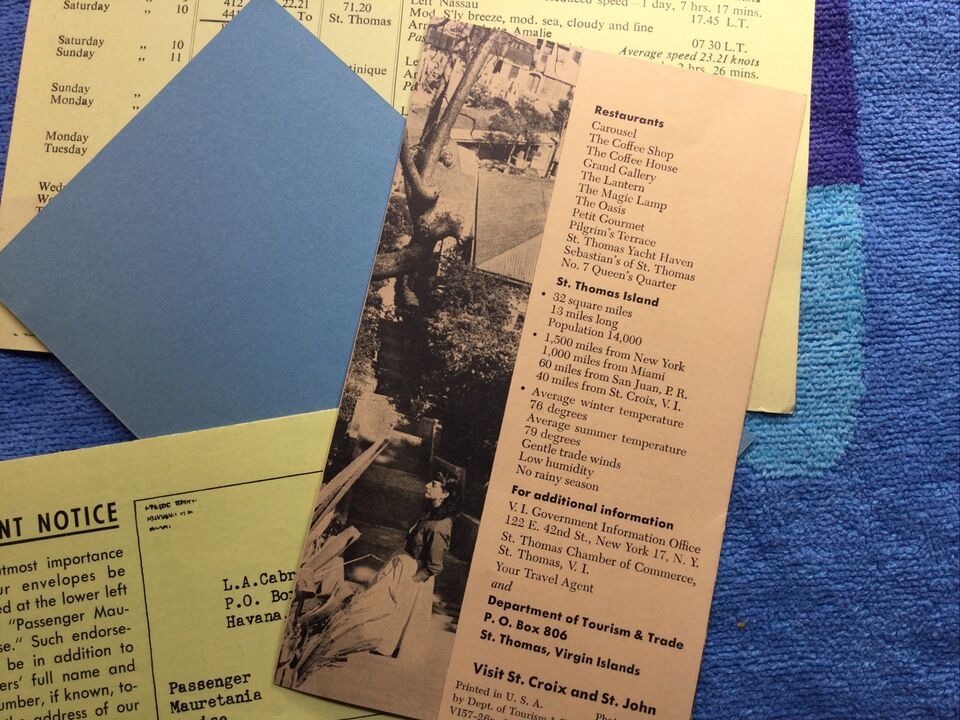 412 22.21 71.20
Saturday ,, 10 441 To St. Thomas
Left Nassau
speed—1 day, 7 hrs. 17 mins.
17.45 L.T.
Mod. S'ly breeze, mod. sea, cloudy and fine
Amalie
07 30 L.T.
Average speed 23.21 knots
hrs. 26 mins.
Saturday ,, 10
Sunday ,, 11
Sunday
Monday
Monday
Tuesday
Restaurants
Carousel
The Coffee Shop
The Coffee House
Grand Gallery
The Lantern
The Magic Lamp
The Oasis
Petit Gourmet
Pilgrim's Terrace
St. Thomas Yacht Haven
Sebastian's of St. Thomas
No. 7 Queen's Quarter
St. Thomas Island
• 32 square miles
13 miles long
Population 14,000
• 1,500 miles from New York
1,000 miles from Miami
60 miles from San Juan, P. R.
40 miles from St. Croix, V. I.
• Average winter temperature
76 degrees
Average summer temperature
79 degrees
Gentle trade winds
Low humidity
No rainy season
For additional information
V. I. Government Information Office
122 E. 42nd St., New York 17, N. Y.
St. Thomas Chamber of Commerce,
St. Thomas, V. I.
Your Travel Agent
and
Department of Tourism & Trade
P. O. Box 806
St. Thomas, Virgin Islands
Visit St. Croix and St. John
Printed in U. S. A.
by Dept. of Tourism
NT NOTICE
utmost importance
ur envelopes be
ed at the lower left
"Passenger Mau-
se." Such endorse-
be in addition to
ers' full name and
umber, if known, to-
the address of our
L.A.Cabr
P.O. Box
Havana
Passenger
Mauretania